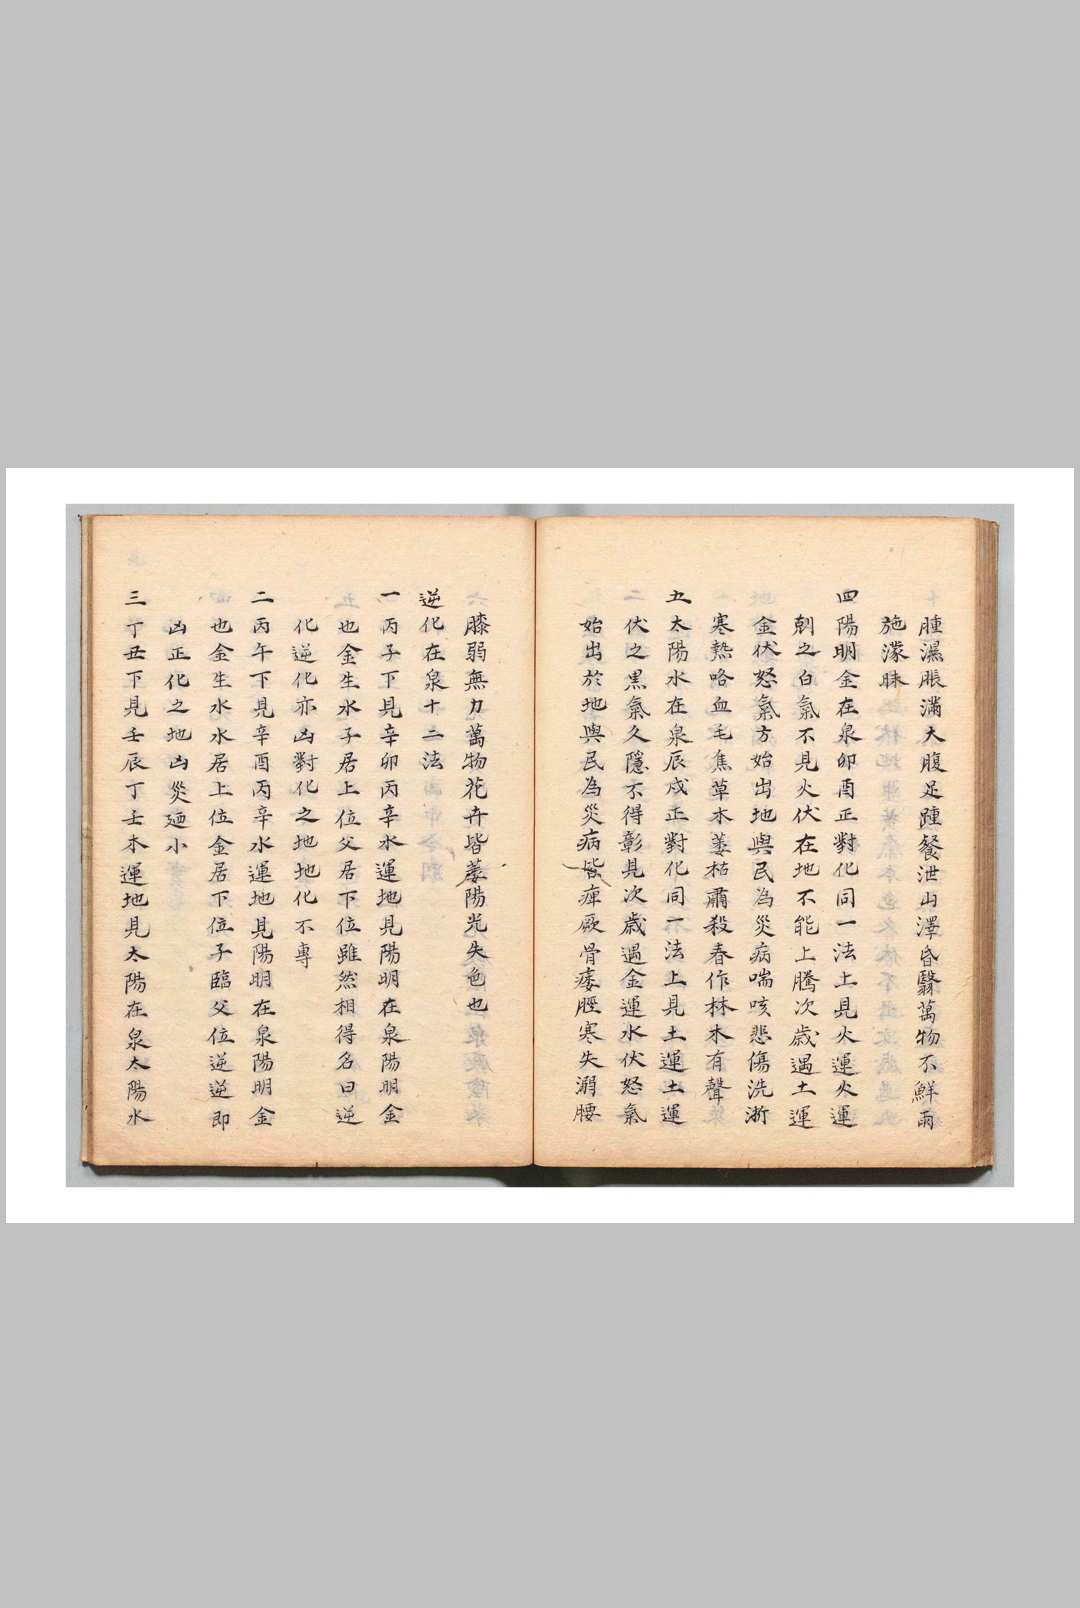 腫濕脹滿大腹足踵餐泄山澤昏翳萬物不鮮雨
施濛昧
四陽明金在泉卯酉正對化同一法上見火運火運
剋之白氣不見火伏在地不能上騰次歲遇土運
金伏怒氣方始出地與民為災病喘咳悲傷洗淅
寒熱咯血毛焦草木萎枯肅殺春作林木有聲
五太陽水在泉辰戌正對化同一法上見土運土運
伏之黑氣久隱不得彰見次歲遇金運水伏怒氣
始出於地與民為災病皆痺厥骨痿脛寒失溺腰
膝弱無力萬物花卉皆萎陽光失色也
逆化在泉十二法
一丙子下見辛卯丙辛水運地見陽明在泉陽明金
也金生水子居上位父居下位雖然相得名曰逆
化逆化亦凶對化之地地化不專
二丙午下見辛酉丙辛水運地見陽明在泉陽明金
也金生水水居上位金居下位子臨父位逆逆即
凶正化之地凶災廼小
三丁丑下見壬辰丁壬木運地見太陽在泉太陽水